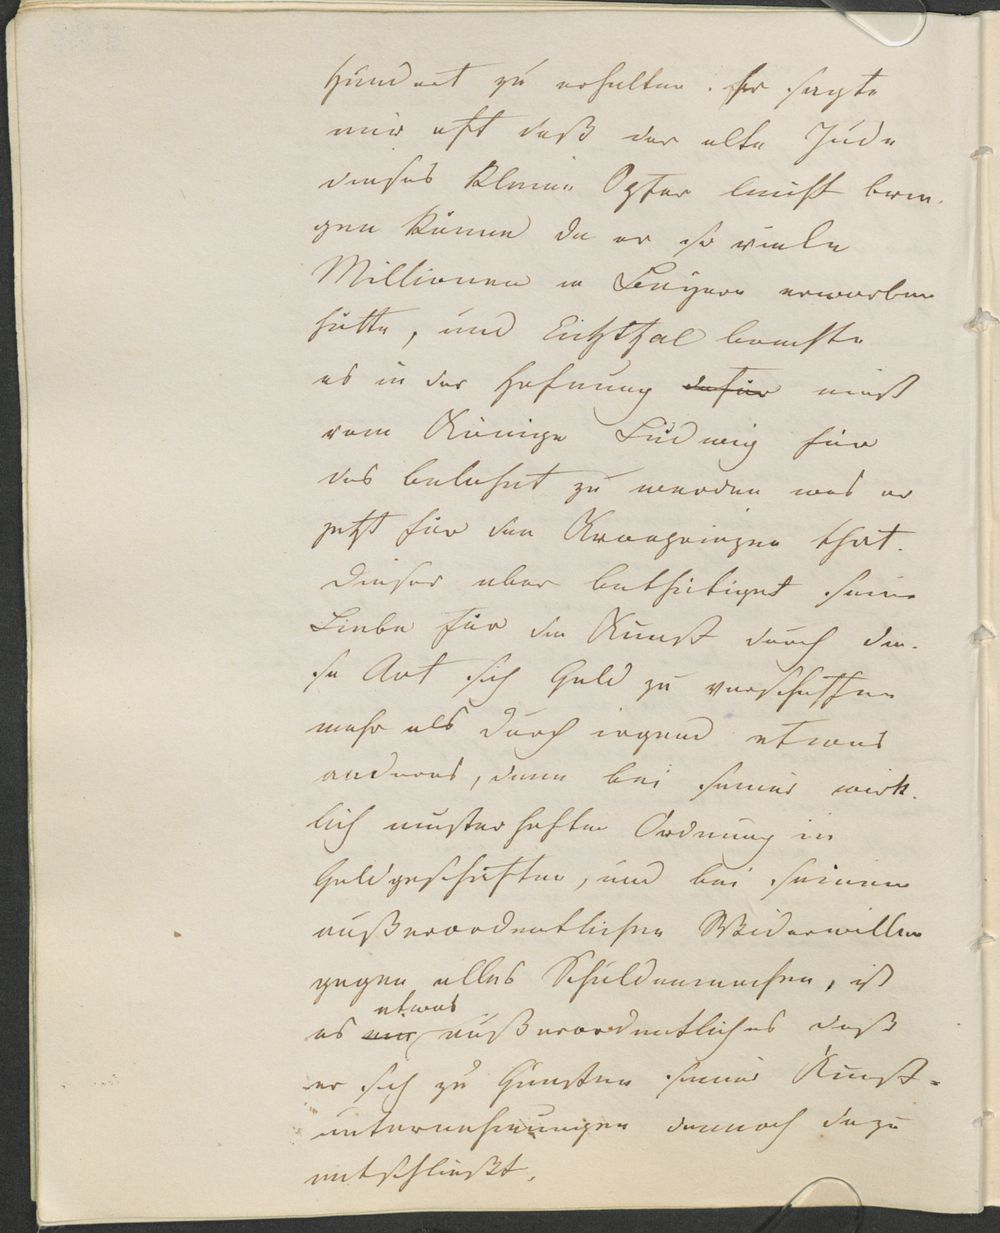 Hundert zu erhalten. Er sagte
mir oft daß der alte Jude
dieses kleine Opfer leicht brin-
gen könne da er so viele
Millionen in Bayern erworben
hätte, und Eichthal brachte
es in der Hofnung dafür einst
vom Könige Ludwig für
das belohnt zu werden was er
jetzt für den Kronprinzen that.
Dieser aber bethätiget seine
Liebe für die Kunst durch die-
se Art sich Geld zu verschaffen
mehr als durch irgend etwas
anderes, denn bei seiner wirk-
lich musterhaften Ordnung in
Geldgeschäften, und bei seinem
außerordentlichen Widerwillen
gegen alles Schuldenmachen, ist
es etwas außerordentliches daß
er sich zu Gunsten seiner Kunst-
unternehmungen dennoch dazu
entschließt.